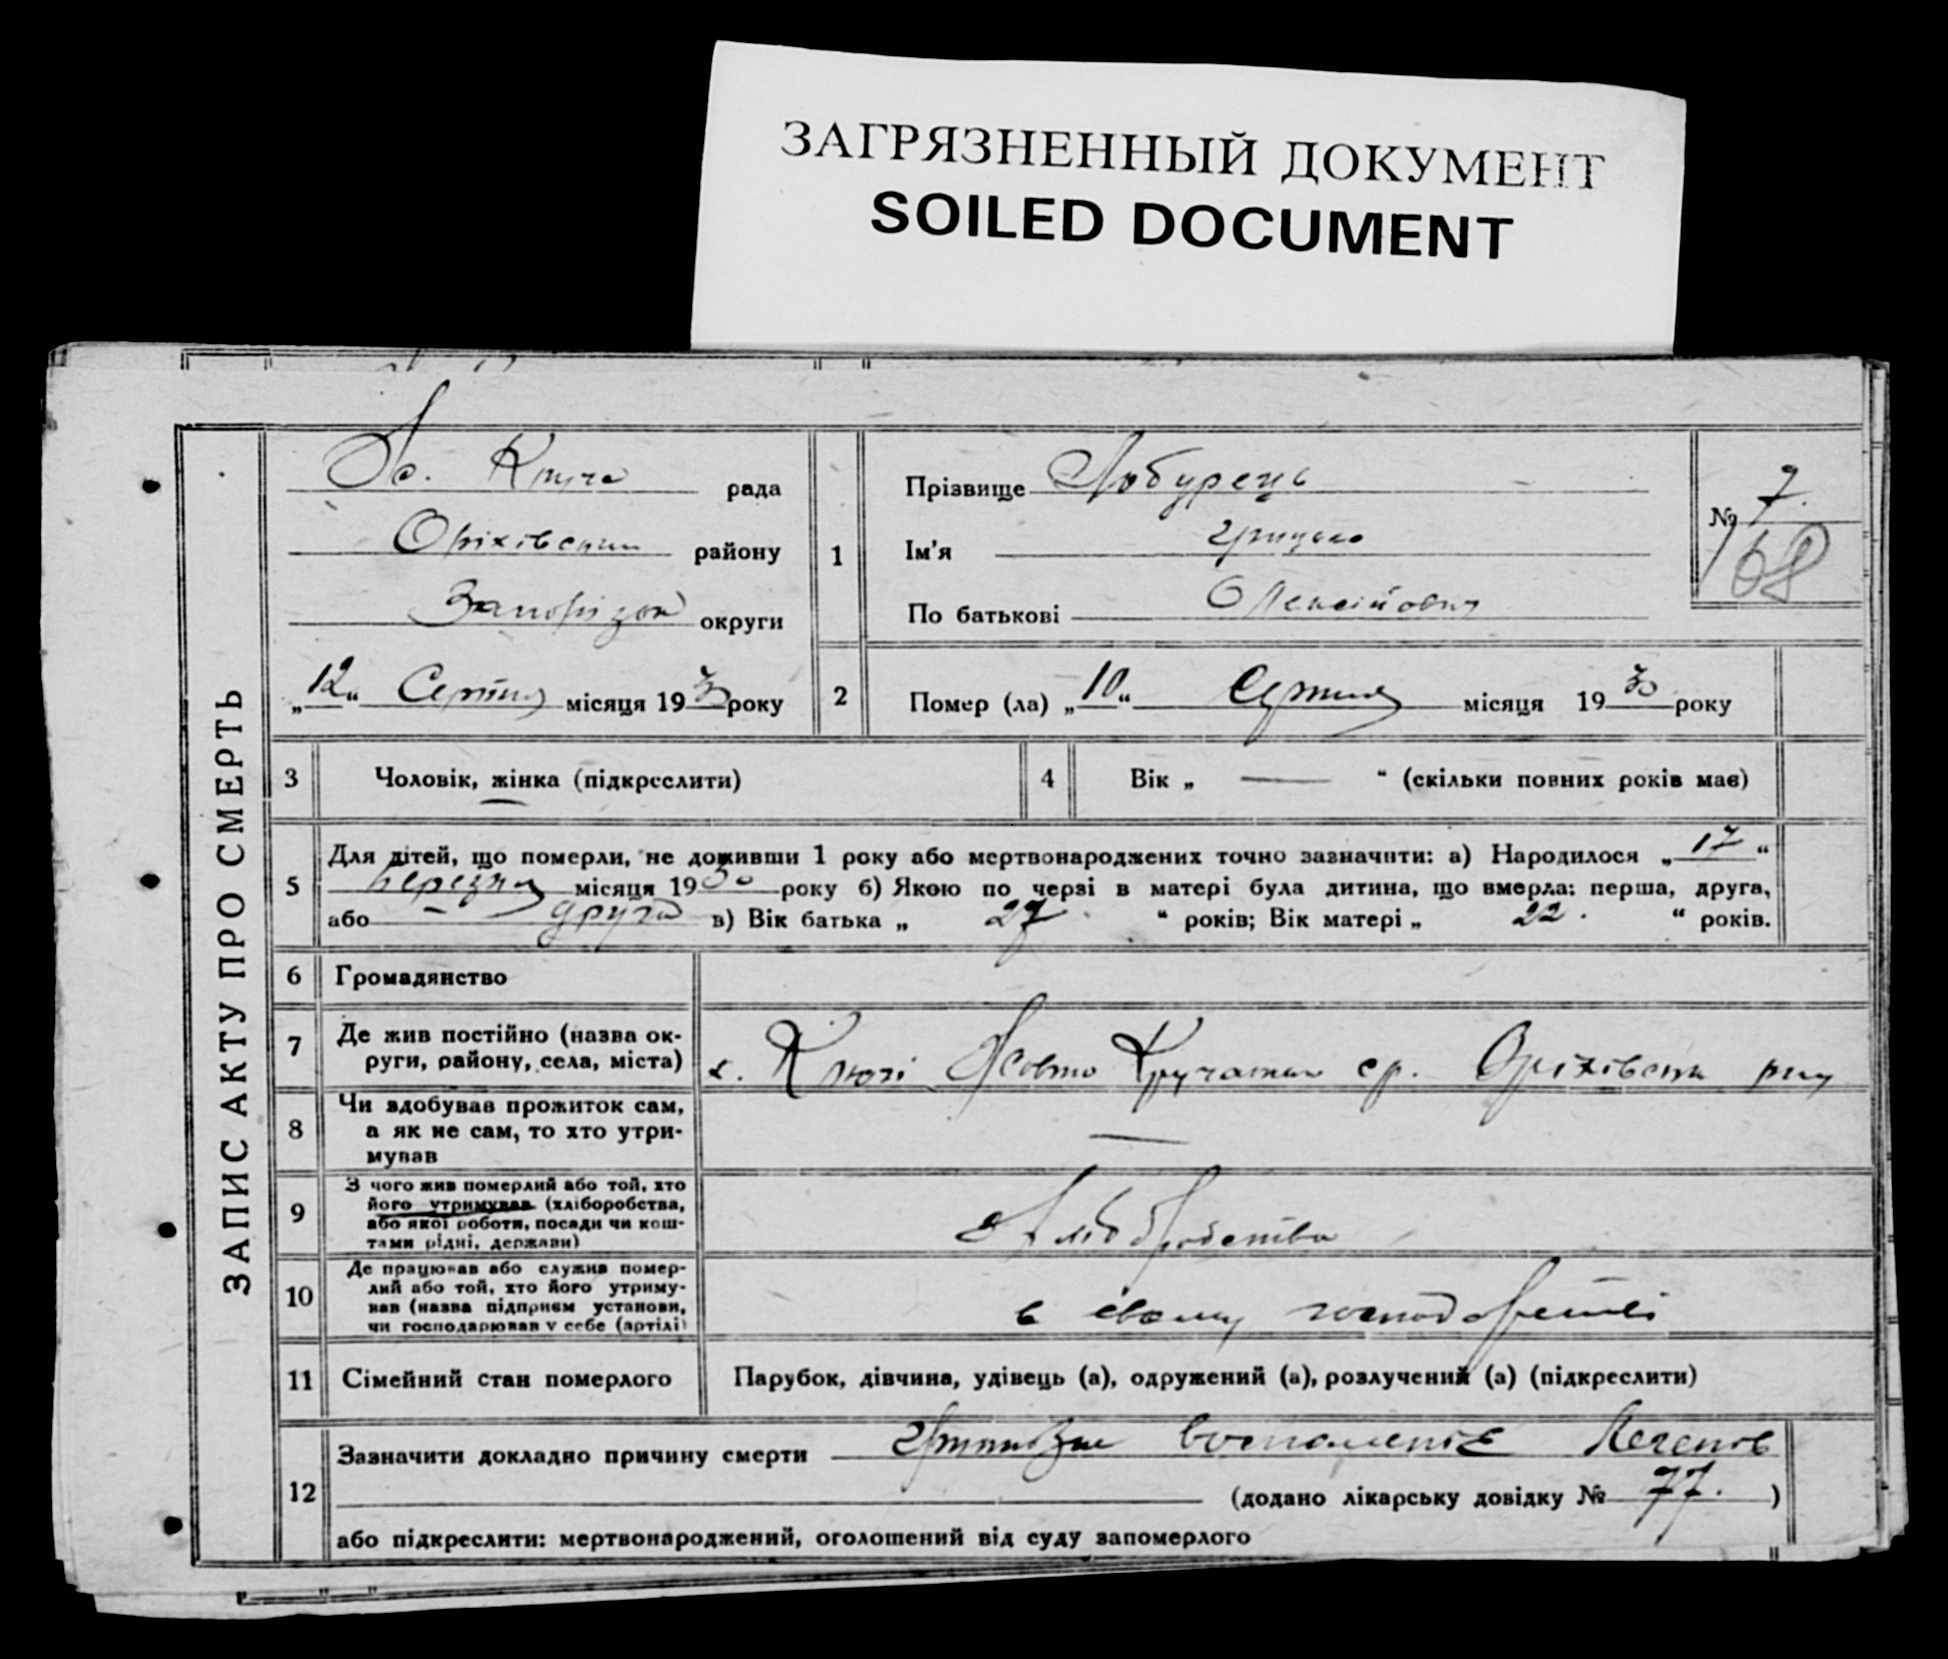 ЗАГРЯЗНЕННЫЙ ДОКУМЕНТ
SOILED DOCUMENT
ЗАПИС АКТУ ПРО СМЕРТЬ
Ж. Круча рада
Оріхівський району
Запорізької округи
„12“ Серпня місяця 1930 року
1
Прізвище Любурець
Ім'я Грицько
По батькові Олексійович
№ 7.
68
2
Помер (ла) „10“ Серпня місяця 1930 року
3 Чоловік, жінка (підкреслити)
4 Вік „ — “ (скільки повних років має)
5 Для дітей, що померли, не доживши 1 року або мертвонароджених точно зазначити: а) Народилося „17“
березня місяця 1930 року б) Якою по черзі в матері була дитина, що вмерла: перша, друга,
або друга в) Вік батька „ 27 “ років; Вік матері „ 22. “ років.
6 Громадянство
7 Де жив постійно (назва ок-
руги, району, села, міста)
х. Ключі Жовто Кручанськ ср. Оріхівськ рну
8 Чи здобував прожиток сам,
а як не сам, то хто утри-
мував
—
9 З чого жив померлий або той, хто
його утримував (хліборобства,
або якої роботи, посади чи кош-
тами рідні, держави)
Хліборобство
10 Де працював або служив помер-
лий або той, хто його утриму-
вав (назва підприєм установи,
чи господарював у себе (артілі)
в своему господарстві
11 Сімейний стан померлого
Парубок, дівчина, удівець (а), одружений (а), розлучений (а) (підкреслити)
12 Зазначити докладно причину смерти воспаление Легенів
(додано лікарську довідку № 77. )
або підкреслити: мертвонароджений, оголошений від суду запомерлого